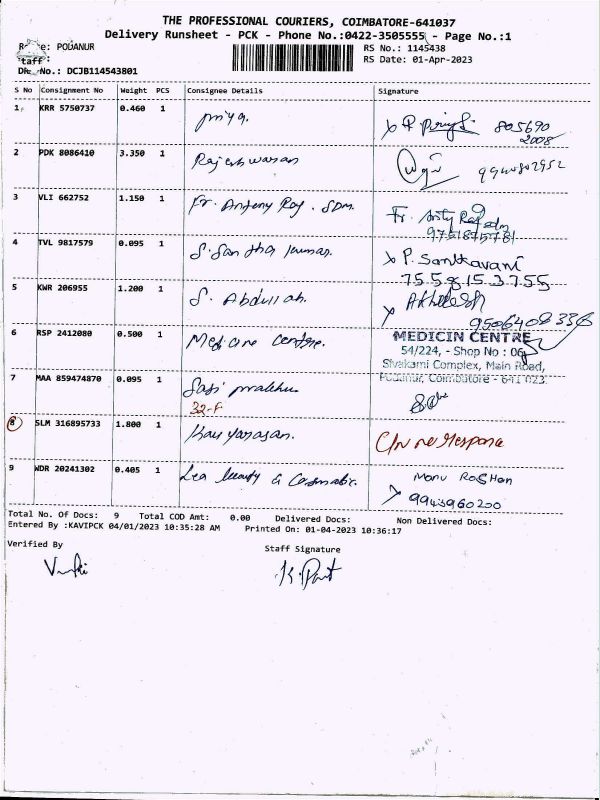 THE PROFESSIONAL COURIERS, COIMBATORE-641037
Delivery Runsheet - PCK - Phone No.:0422-3505555 - Page No.:1
PODANUR
RS No.: 1145438
Staff
RS Date: 01-Apr-2023
No.: DCJB114543801
S No Consignment No Weight PCS Consignee Details Signature
1 KRR 5750737 0.460 1 priya.
805690
2008
2 PDK 8086410 3.350 1 Rajeshwaran
9940802952
3 VLI 662752 1.150 1 Fr. Antony Raj. SDM.
Fr.
4 TVL 9817579 0.095 1 S. Santha kumar.
P. Santhavani
755 8 15 3755
5 KWR 206955 1.200 1 S. Abdullah.
Akhilesh
6 RSP 2412080 0.500 1 Medicine centre.
MEDICIN CENTRE
54/224, - Shop No : 06,
Sivakami Complex, Main Road,
Podanur, Coimbatore - 641 023.
7 MAA 859474870 0.095 1 Sasi prabhu
32-F
8 SLM 316895733 1.800 1
C/N no response
9 WDR 20241302 0.405 1 Lea beauty & Cosmatic.
Manu Roshan
9943960200
Total No. Of Docs: 9 Total COD Amt: 0.00 Delivered Docs: Non Delivered Docs:
Entered By :KAVIPCK 04/01/2023 10:35:28 AM Printed On: 01-04-2023 10:36:17
Verified By
Staff Signature